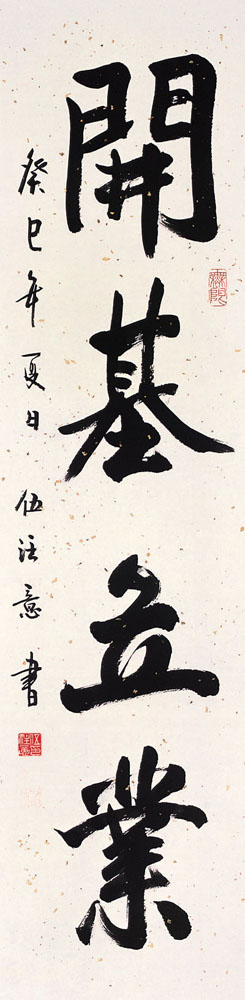 開基立業
癸巳年夏日伍注意書